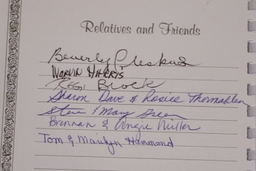 Relatives and Friends
Beverly Cheskus
NORVIN HARRIS
Reg. Brock
Sharon Dave & Rosiee Thornahlen
Steve & Mary Green
Brennan & Angie Miller
Tom & Marilyn Hammond